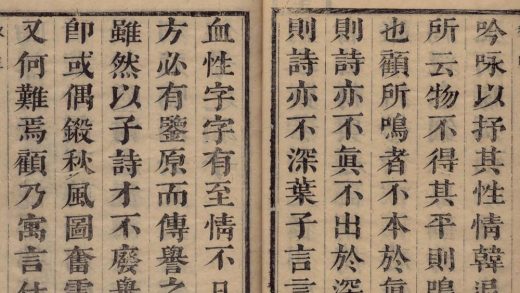 吟咏以抒其性情韓退
所云物不得其平則鳴
也顧所鳴者不本於眞
則詩亦不眞不出於深
則詩亦不深葉子言言
血性字字有至情不
方必有鑒原而傳譽之
雖然以子詩才不廢舉
卽或偶鍛秋風圖奮雲
又何難焉顧乃寓言仕